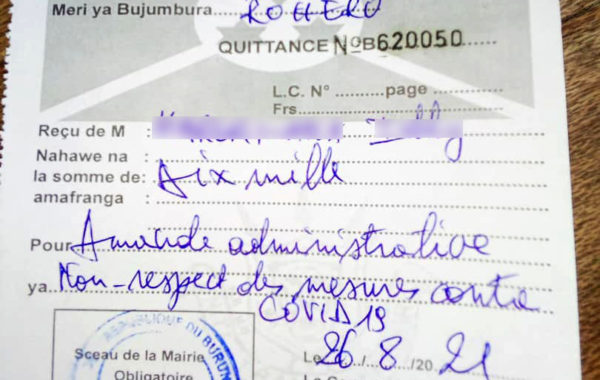 Meri ya Bujumbura........ROHERO
QUITTANCE NºB620050
L.C. Nº ...........page ............
Frs.
Reçu de M :
Nahawe na :
la somme de: Dix mille
amafranga :
Pour Amande administrative
ya. Non-respect des mesures contre
COVID 19
REPUBLIQUE DU BURUN
Sceau de la Mairie
Obligatoire
Le 26/8/2021